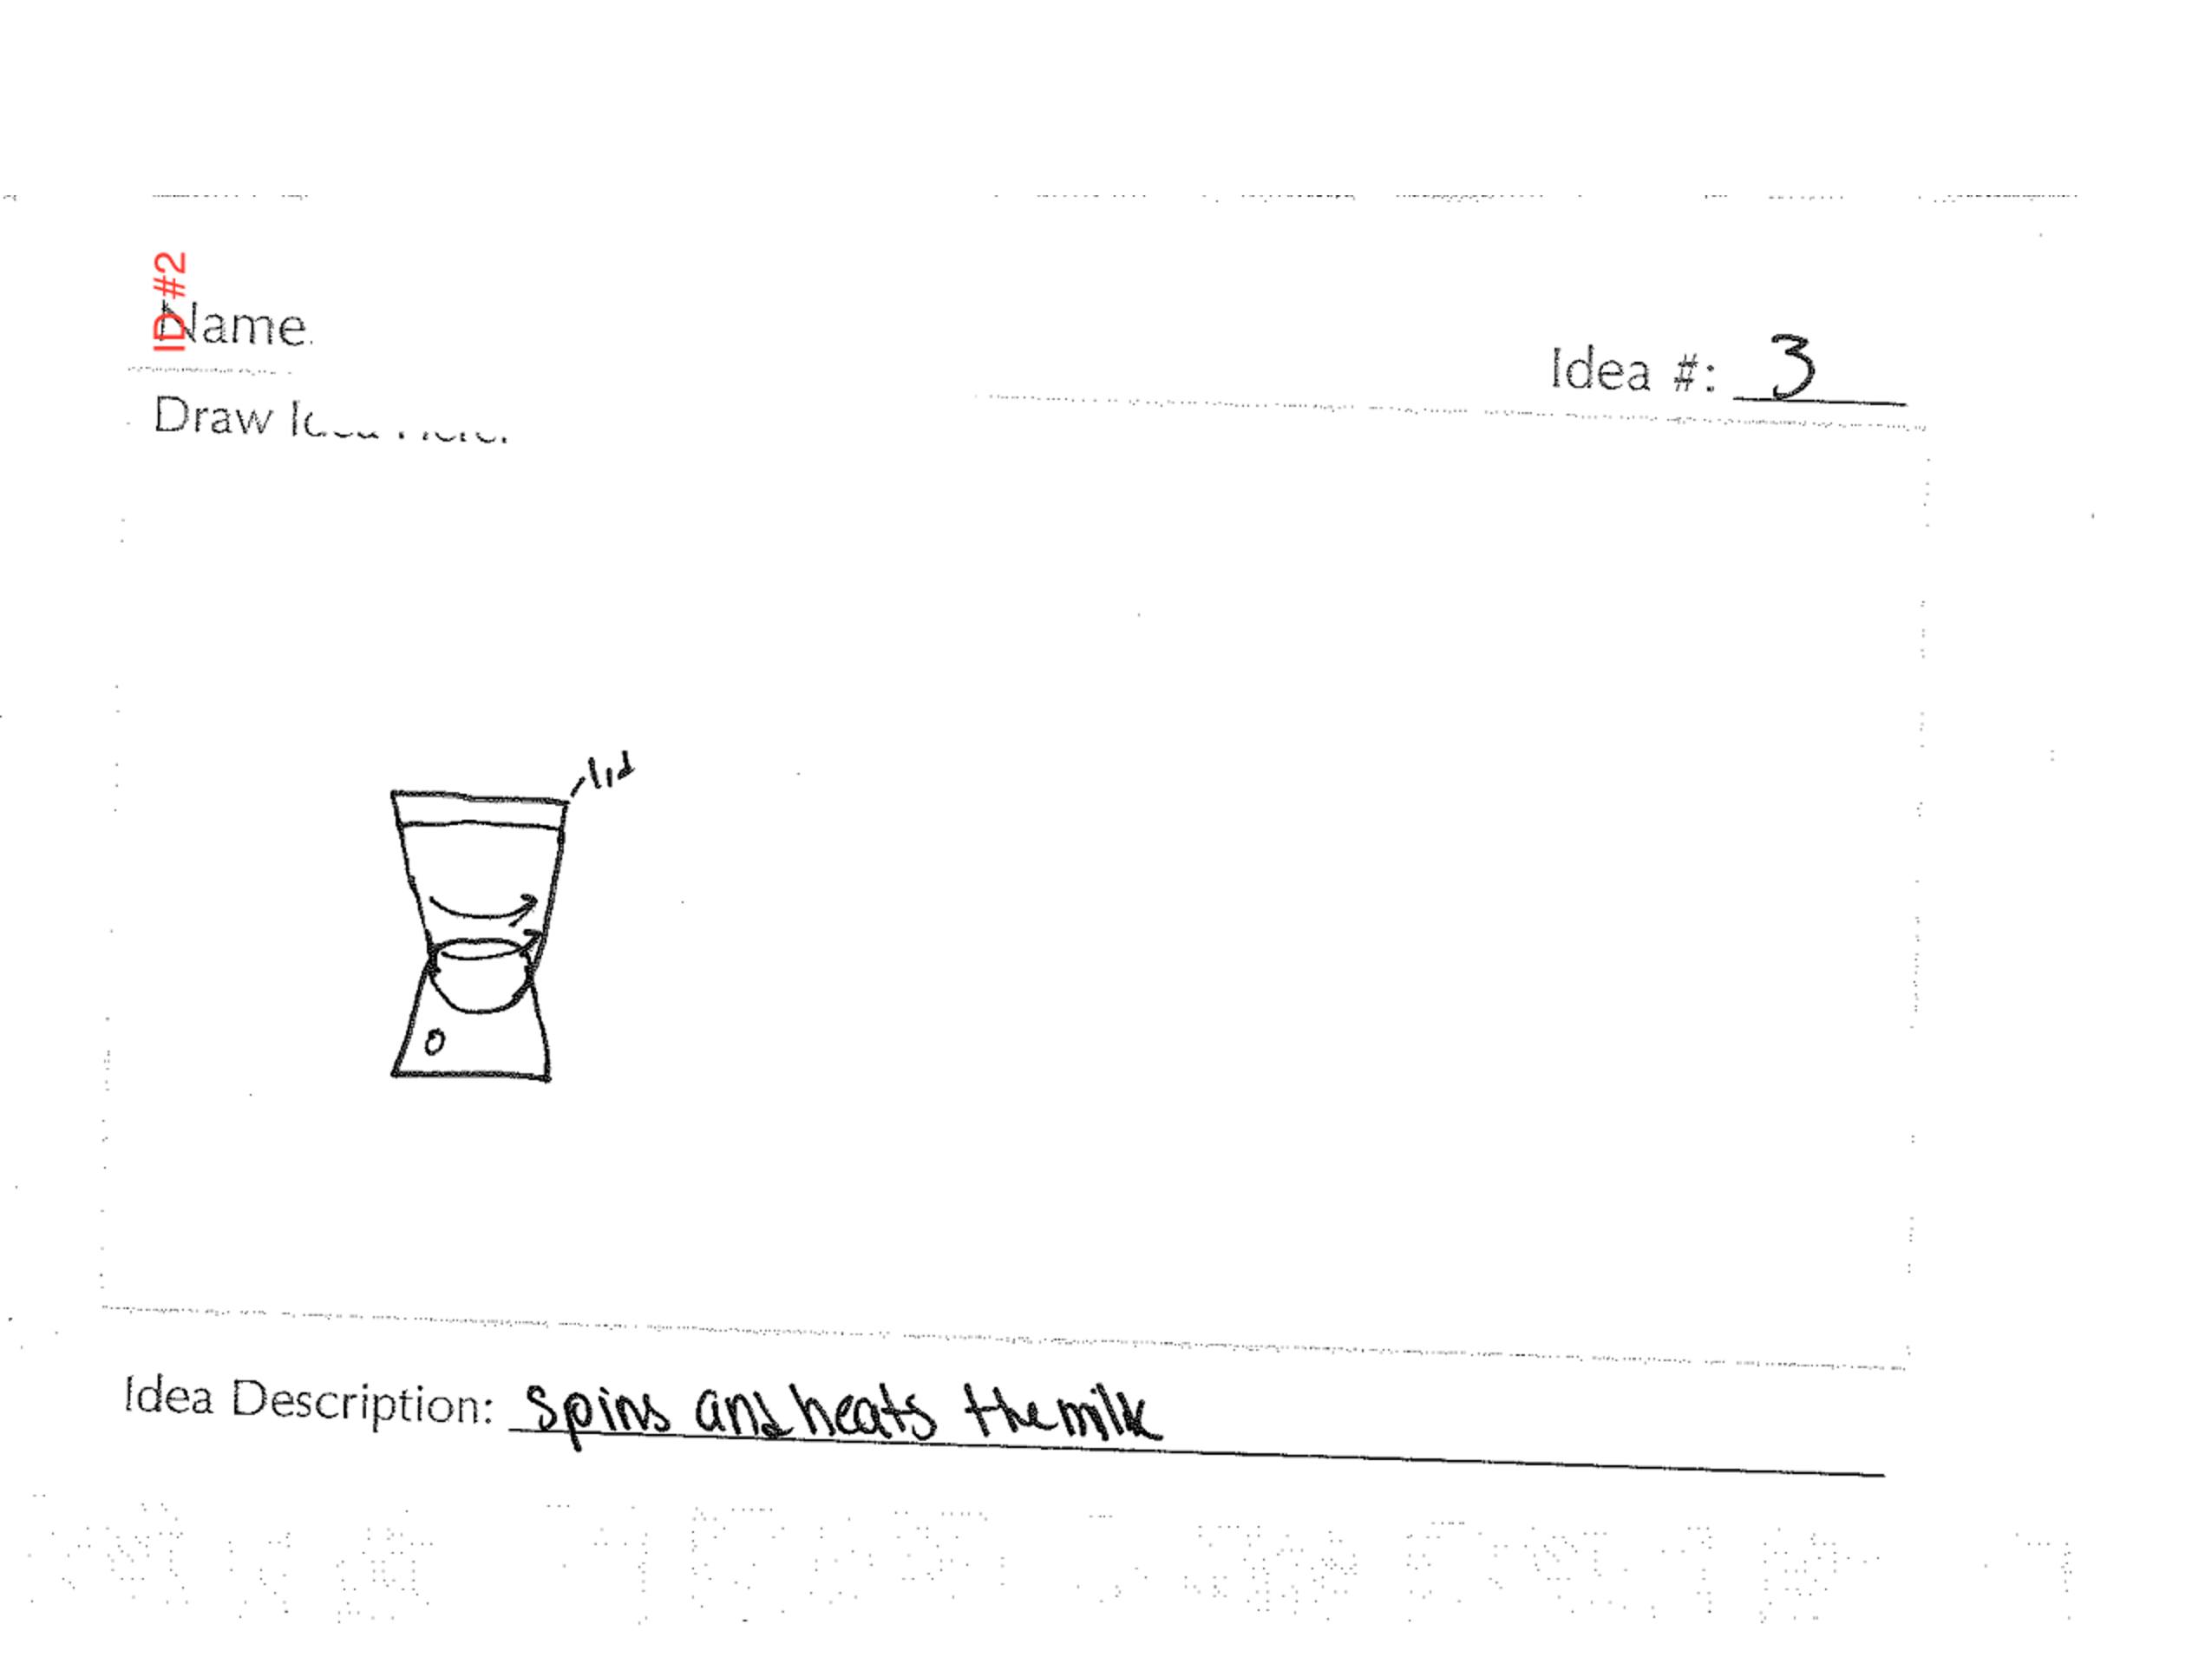 ID #2
Name
Idea #: 3
Draw
lid
Idea Description: spins and heats the milk